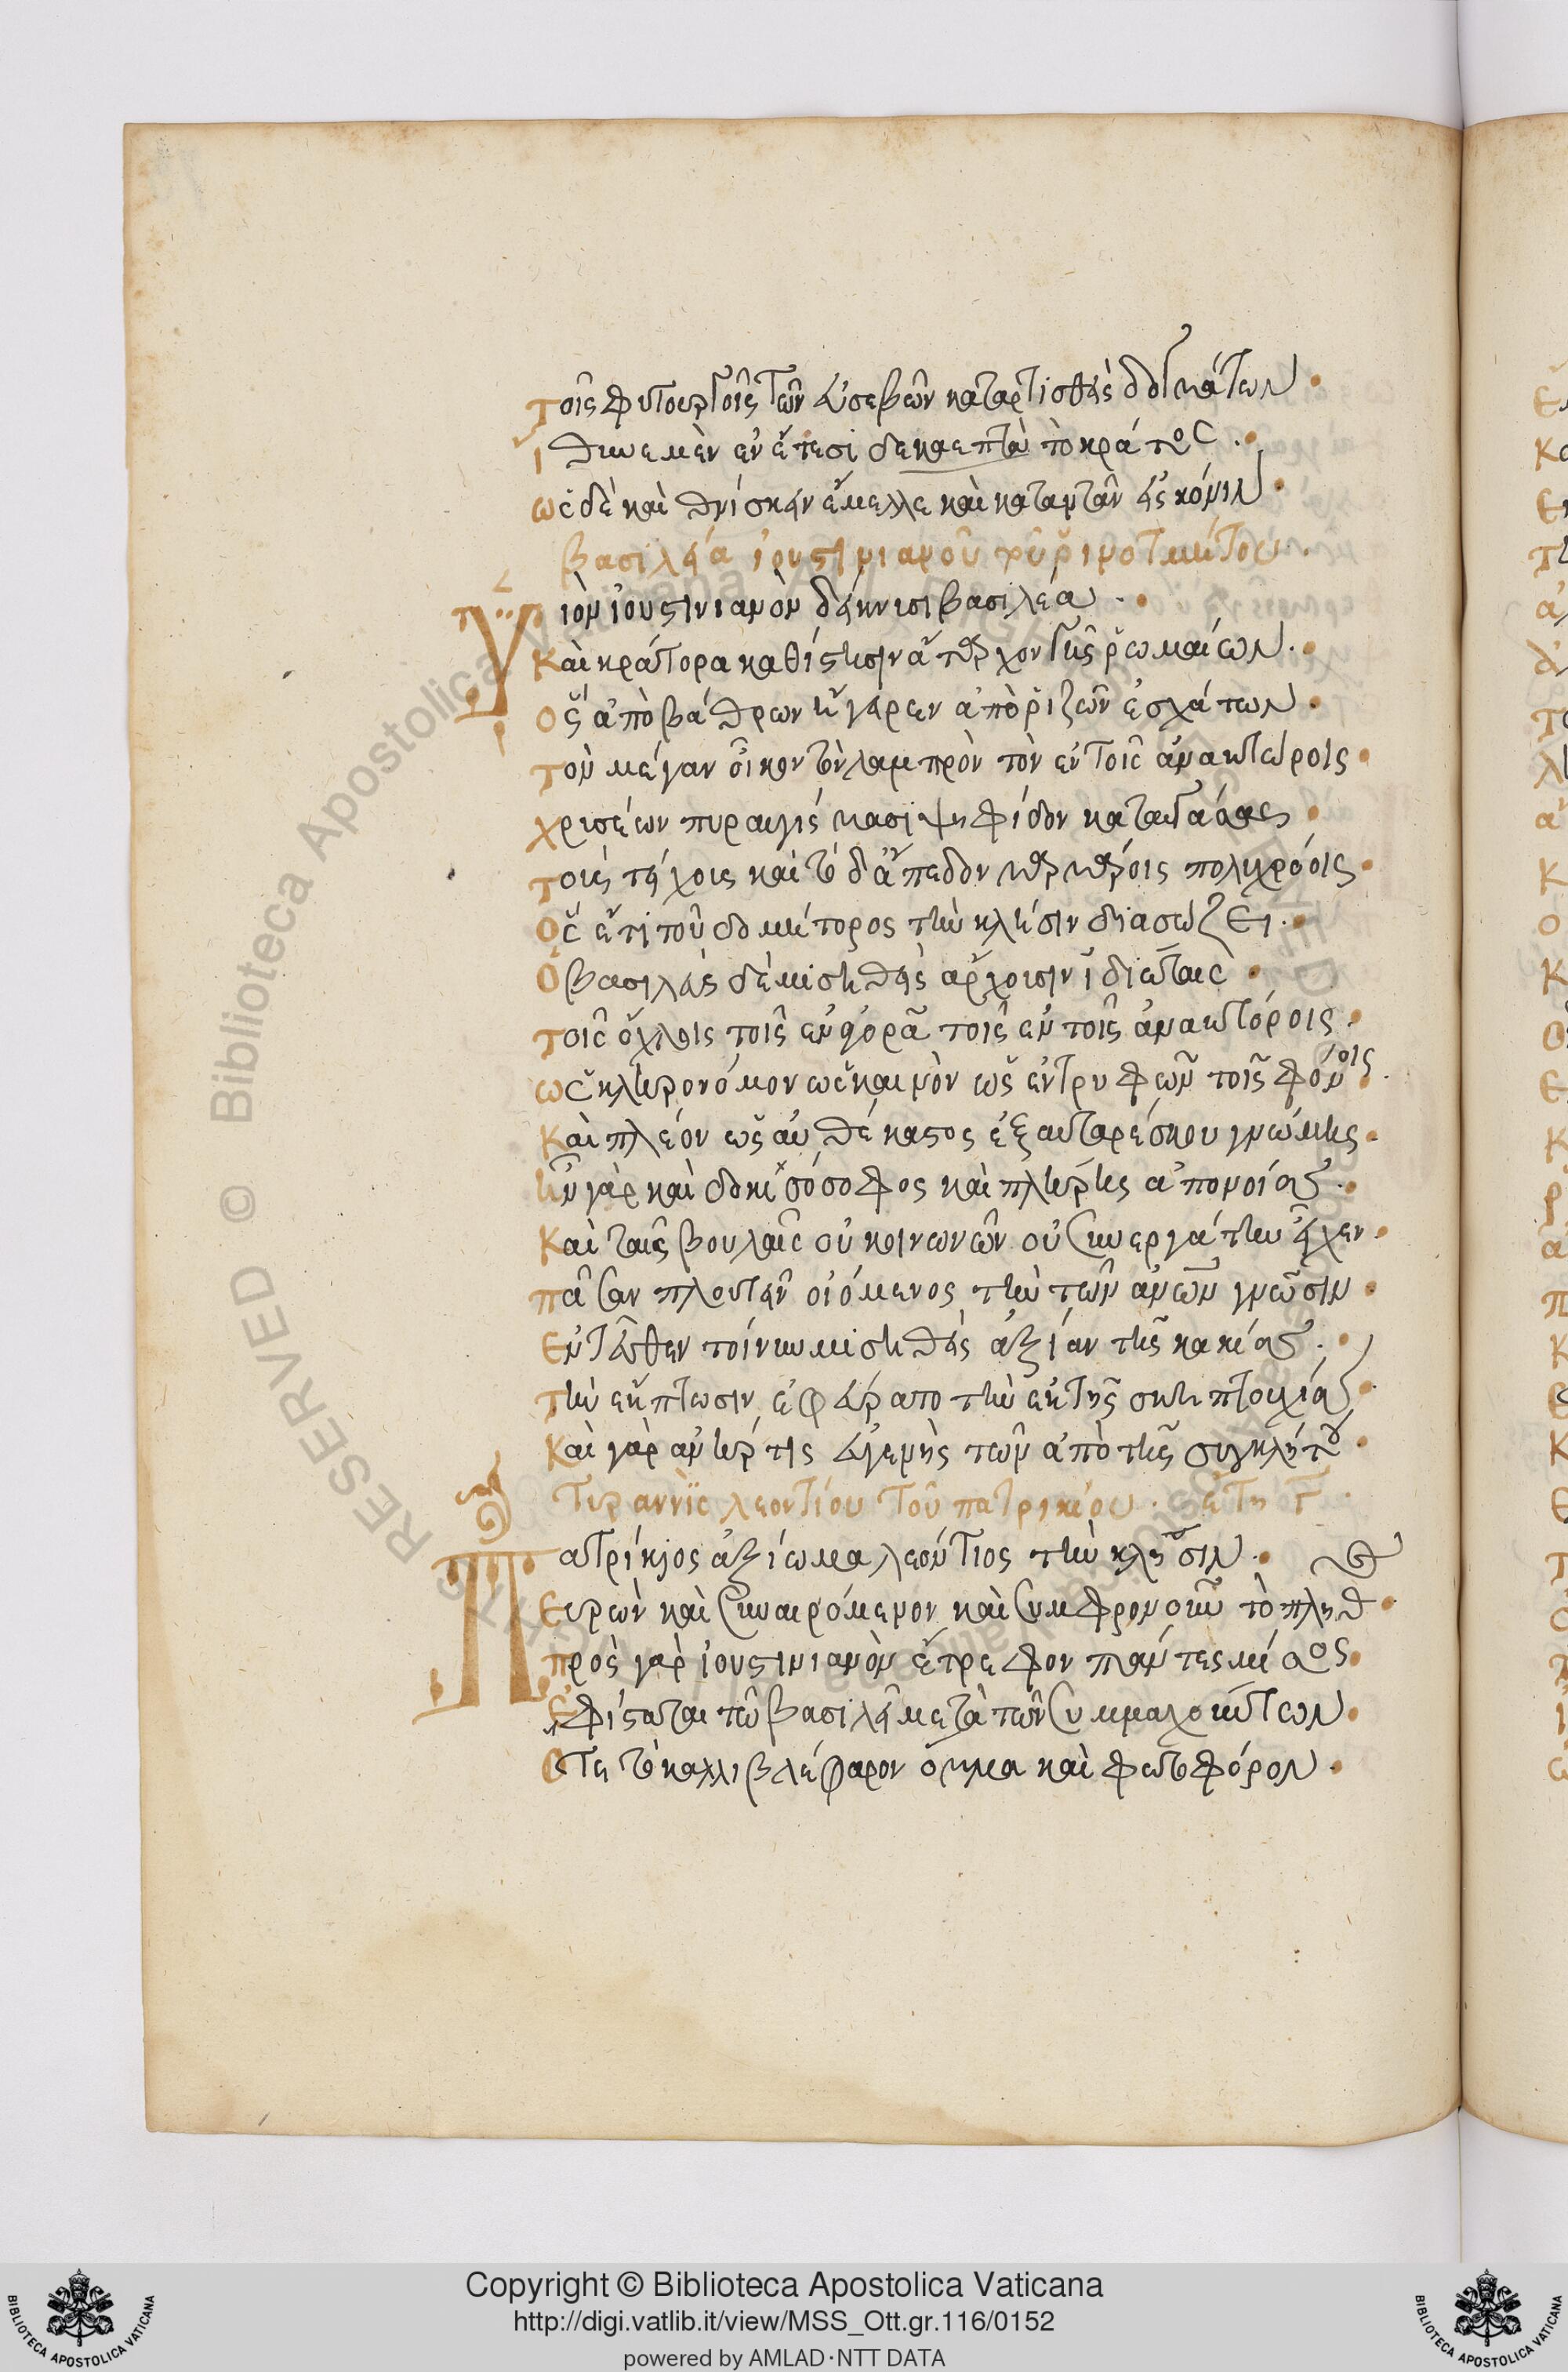 τοῖς φυτουργοῖς τῶν εὐσεβῶν καταρτισθεὶς δογμάτων.
ἴθυνε μὲν ἐν ἔτεσι δεκαεπτὰ τὸ κράτος.
ὡς δὲ καὶ θνίσκειν ἔμελλε καὶ καταντᾶν εἰς κόνιν.
βασιλεία ἰουστινιανοῦ τοῦ ῥινοτμήτου.
Υἱὸν ἰουστινιανὸν δείκνυσι βασιλέα.
καὶ κράτορα καθίστησιν αὔταρχον γῆς ῥωμαίων.
ὃς ἀπὸ βάθρων ἤγειρεν ἀπὸ ῥιζῶν ἐσχάτων.
τὸν μέγαν οἶκον τὸν λαμπρὸν τὸν ἐν τοῖς ἀνακτόροις.
χρυσέων πυραυγίσμασι ψηφίδων καταυγάσας.
τοὺς τείχους καὶ τὸ δάπεδον μαρμάροις πολυχρόοις.
ὃς ἔτι τοῦ δομήτορος τὴν κλήσιν διασώζει.
ὁ βασιλεὺς δὲ μισηθεὶς ἄρχουσιν ἰδιώταις.
τοῖς ὄχλοις τοῖς ἐν ἀγορᾶ τοῖς ἐν τοῖς ἀνακτόροις.
ὡς κληρονόμον ὡς καινὸν ὡς ἐντρυφῶν τοῖς φόνοις.
καὶ πλέον ὡς αὐθέκαστος ἐξ αὐταρέσκου γνώμης.
ἦν γὰρ καὶ δοκισόσοφος καὶ πλήρης ἀπονοίας.
καὶ ταῖς βουλαῖς οὐ κοινωνῶν οὐ συνεργάτην εἶχεν.
πᾶσαν πλουτεῖν οἰόμενος τὴν τῶν ἀνων γνῶσιν.
ἐντεῦθεν τοίνυν μισηθεὶς ἀξίαν τῆς κακίας.
τὴν ἔκπτωσιν ἐφεύρατο τὴν ἐκ τῆς σκηπτουχίας.
καὶ γὰρ ἀνήρ τις εὐγενὴς τῶν ἀπὸ τῆς συγκλήτου.
Τυραννὶς λεοντίου τοῦ πατρικίου. ἔτη γ.
Πατρίκιος ἀξίωμα λεόντιος τὴν κλῆσιν.
εὑρὼν καὶ συναιρόμενον καὶ συμφρονοῦν τὸ πλῆθος.
πρὸς γὰρ ἰουστινιανὸν ἔτρεφον πάντες μίσος.
ἐφίσταται τῶ βασιλεῖ μετὰ τῶν συμμαχούντων.
ὅτε τὸ καλλιβλέφαρον ὄμμα καὶ φωτοφόρον.
Copyright © Biblioteca Apostolica Vaticana
http://digi.vatlib.it/view/MSS_Ott.gr.116/0152
powered by AMLAD·NTT DATA